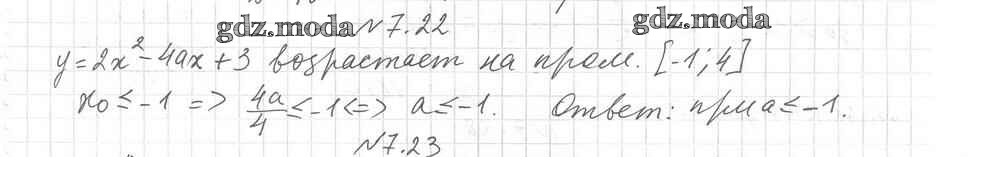 gdz.moda №7.22 gdz.moda
y=2x²-4ax+3 возрастает на пром. [-1; 4]
x₀ ≤ -1 => 4a/4 ≤ -1 <=> a ≤ -1. Ответ: при a ≤ -1.
№7.23